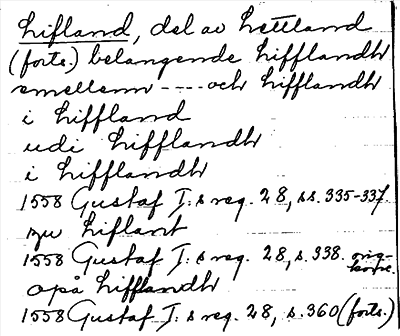 Lifland, del av Lettland
(forts.) belangende Lifflandh
emellenn ---- och Lifflandh
i Liffland
udi Lifflandh
i Lifflandh
1558 Gustaf I:s reg. 28, ss. 335-337.
zu Liflant
1558 Gustaf I:s reg. 28, s. 338. orig-konc.
opå Lifflandh
1558 Gustaf I:s reg. 28, s. 360 (forts.)